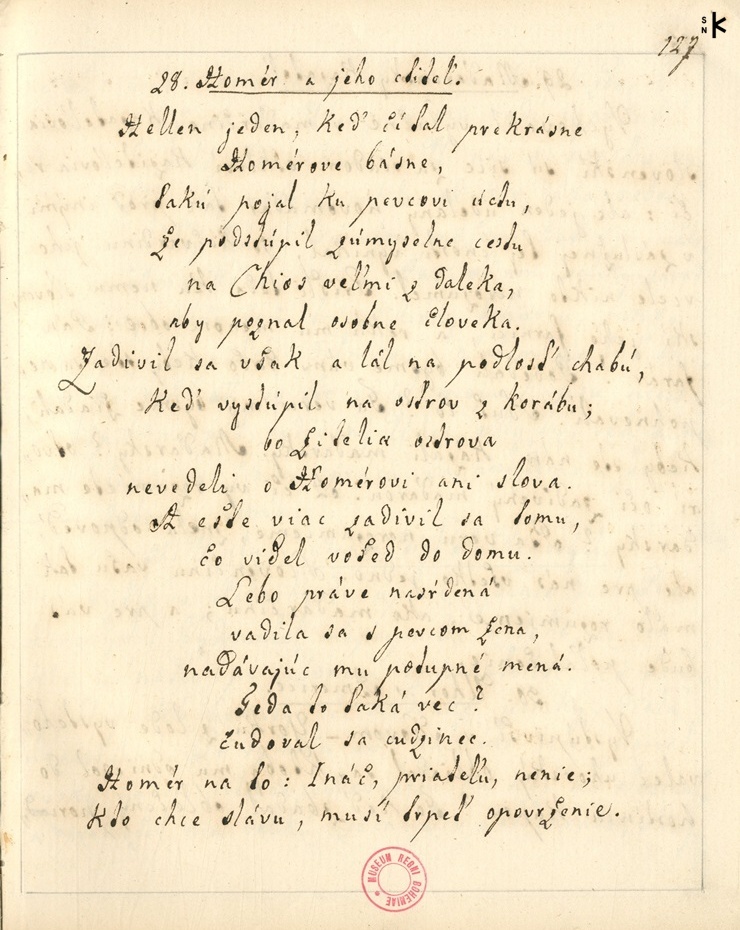 SNK
127
28. Homér a jeho ctiteľ.
Hellen jeden, keď čítal prekrásne
Homérove básne,
takú pojal ku pevcovi úctu,
že podstúpil zúmyselne cestu
na Chios veľmi z daleka,
aby poznal osobne človeka.
Zadivil sa však a lál na podlosť chabú,
keď vystúpil na ostrov z korábu;
bo žitelia ostrova
nevedeli o Homérovi ani slova.
A ešte viac zadivil sa tomu,
čo viďel vošed do domu.
Lebo práve nasŕdená
vadila sa s pevcom žena,
naďávajúc mu potupné mená.
Geďa to taká vec?
čudoval sa cudzinec.
Homér na to: Ináč, priateľu, nenie;
kto chce slávu, musí trpeť opovrženie.
MUSEUM REGNI BOHEMIAE